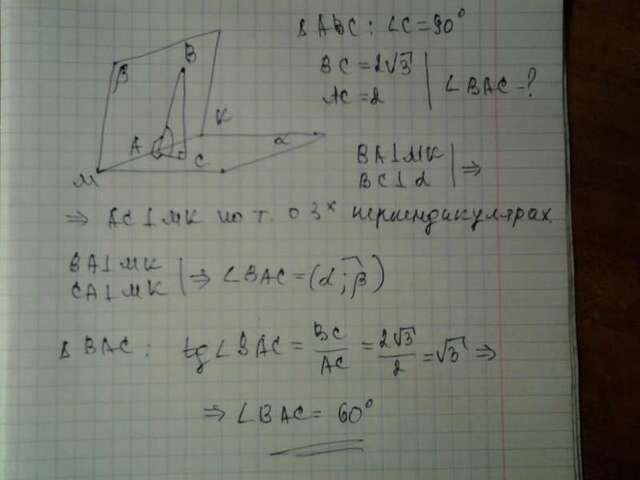 Δ ABC: ∠C = 90°
BC = 2√3
AC = 2 | ∠BAC - ?
β
B
A
C
K
M
α
BA ⊥ MK
BC ⊥ α | ⇒
⇒ AC ⊥ MK по т. о 3ˣ перпендикулярах
BA ⊥ MK
CA ⊥ MK | ⇒ ∠BAC = (α; β)
Δ BAC: tg ∠BAC = BC/AC = 2√3/2 = √3 ⇒
⇒ ∠BAC = 60°